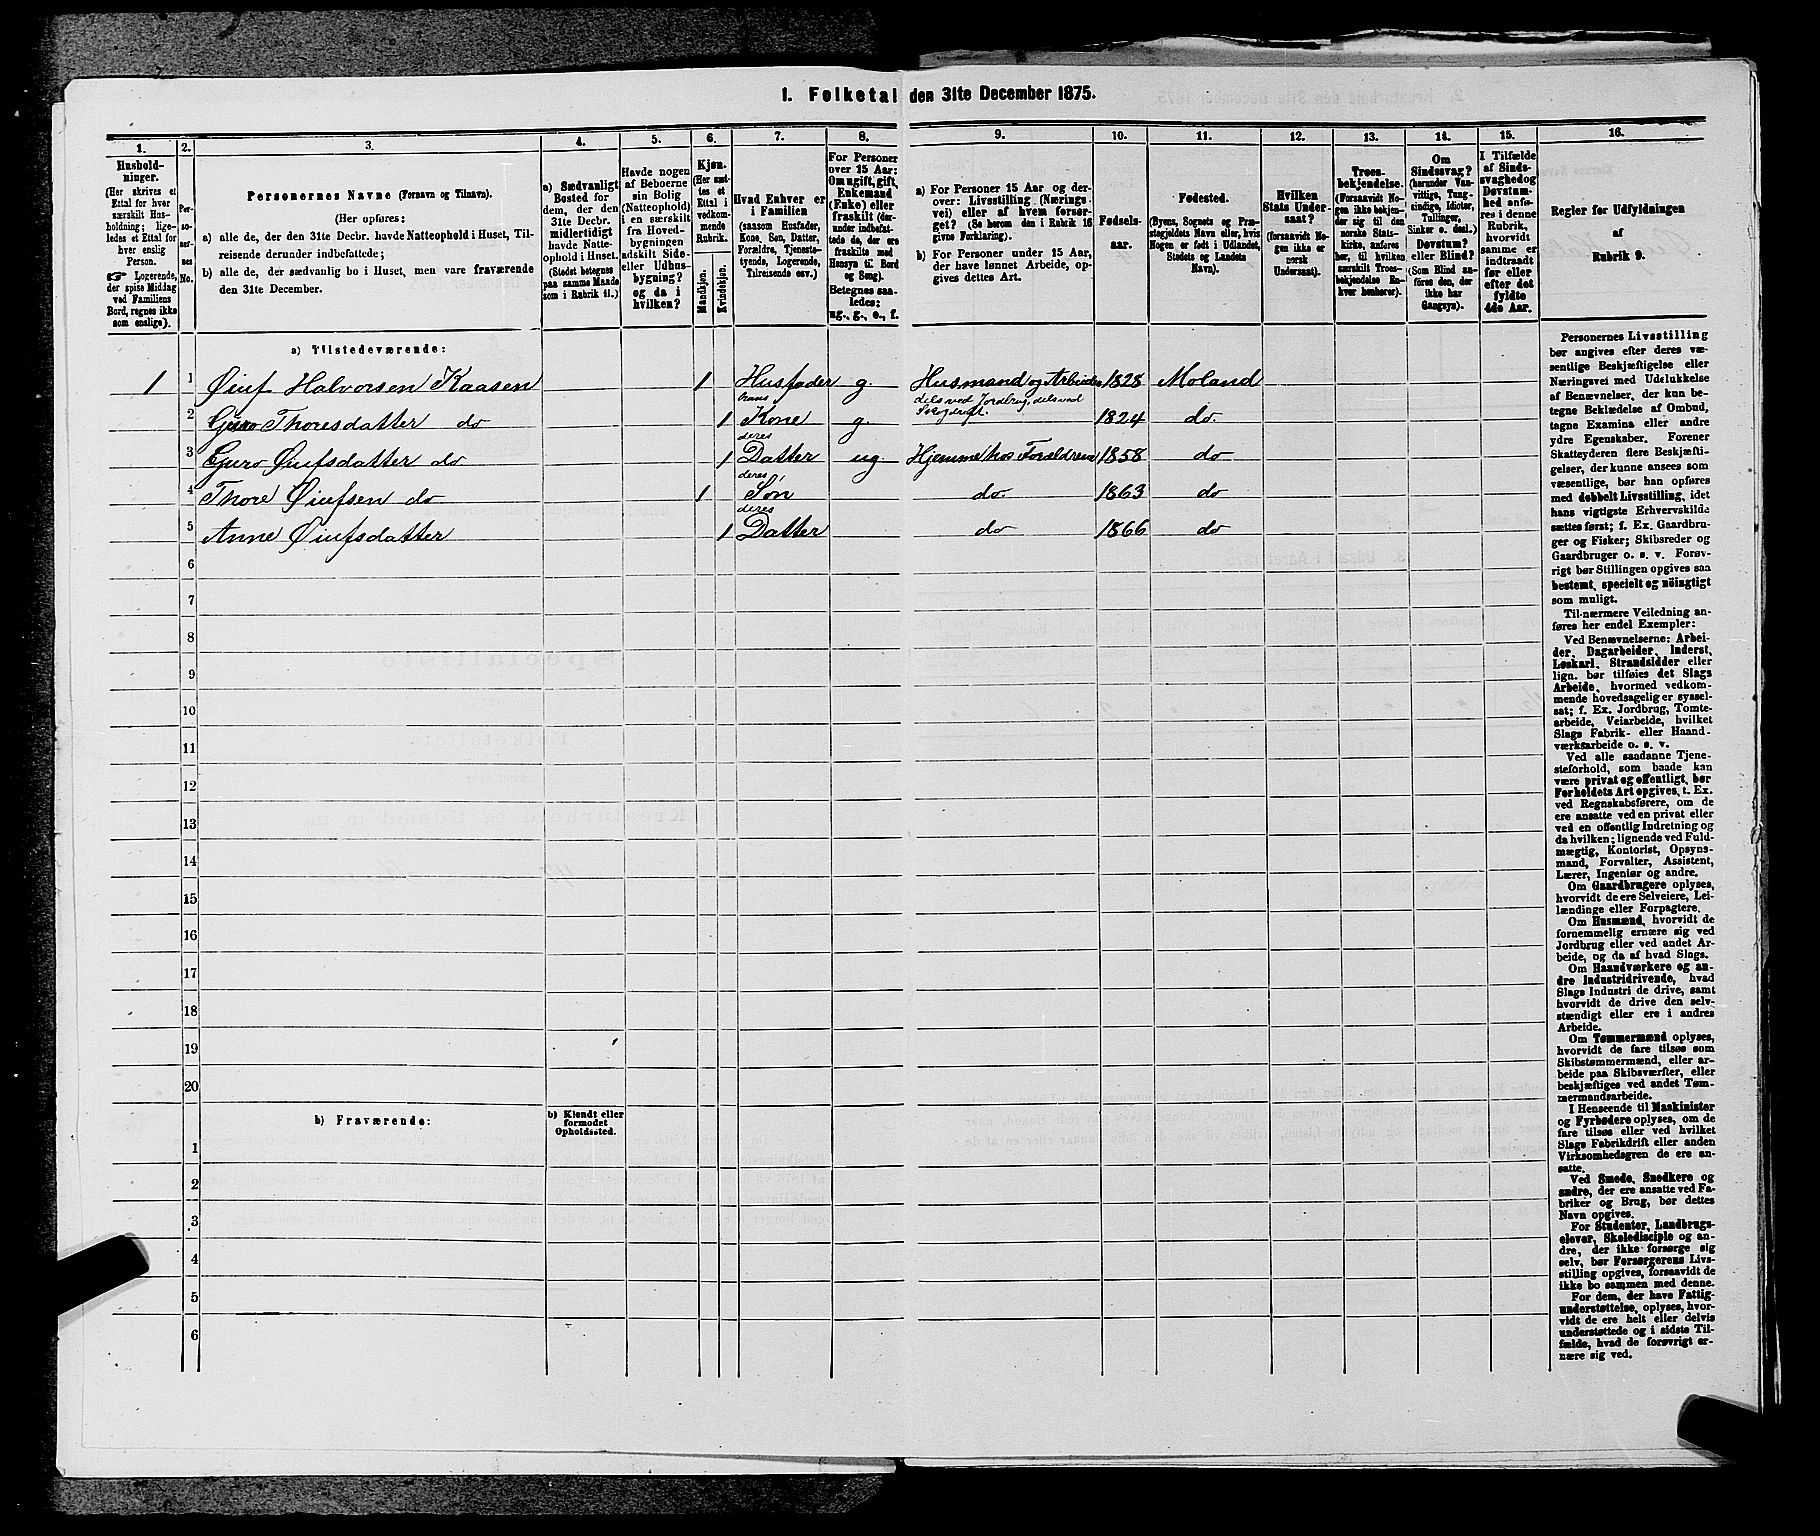 1. Folketal den 31te December 1875.
1. 2. 3. 4. 5. 6. 7. 8. 9. 10. 11. 12. 13. 14. 15. 16.
Hushold-
ninger.
(Her skrives et
Ettal for hver
særskilt Hus-
holdning; lige-
ledes et Ettal for
hver enslig
Person.
☞ Logerende,
der spise Middag
ved Familiens
Bord, regnes ikke
som enslige).
Per-
so-
ner-
nes
No.
Personernes Navne (Fornavn og Tilnavn).
(Her opføres:
a) alle de, der den 31te Decbr. havde Natteophold i Huset, Til-
reisende derunder indbefattede;
b) alle de, der sædvanlig bo i Huset, men vare fraværende
den 31te December.
a) Sædvanligt
Bosted for
dem, der den
31te Decbr.
midlertidigt
havde Natte-
ophold i Huset.
(Stedet betegnes
paa samme Maade
som i Rubrik 11.)
Havde nogen
af Beboerne
sin Bolig
(Natteophold)
i en særskilt
fra Hoved-
bygningen
adskilt Side-
eller Udhus-
bygning?
og da i
hvilken?
Kjøn.
(Her sæt-
tes et
Ettal i
vedkom-
mende
Rubrik.
Mandkjøn.
Kvindekjøn.
Hvad Enhver er
i Familien
(saasom Husfader,
Kone, Søn, Datter,
Forældre, Tjeneste-
tyende, Logerende,
Tilreisende osv.)
For Personer
over 15 Aar:
Om ugift, gift,
Enkemand
(Enke) eller
fraskilt (der-
under indbefat-
tede de, der ere
fraskilte med
Hensyn til Bord
og Seng).
Betegnes saa-
ledes:
ug., g., e., f.
a) For Personer 15 Aar og der-
over: Livsstilling (Nærings-
vei) eller af hvem forsør-
get? (Se herom den i Rubrik 16
givne Forklaring).
b) For Personer under 15 Aar,
der have lønnet Arbeide, op-
gives dettes Art.
Fødsels-
aar.
Fødested.
(Byens, Sognets og Præ-
stegjeldets Navn eller, hvis
Nogen er født i Udlandet,
Stedets og Landets
Navn).
Hvilken
Stats Under-
saat?
(forsaavidt No-
gen ikke er
norsk
Undersaat).
Troes-
bekjendelse.
(Forsaavidt No-
gen ikke bekjen-
der sig til den
norske Stats-
kirke, anføres
her, til hvilken
særskilt Troes-
bekjendelse En-
hver henhører).
Om
Sindssvag?
(herunder Van-
vittige, Tung-
sindige, Idioter,
Tullinger,
Sinker o. desl.)
Døvstum?
eller Blind?
(Som Blind an-
føres den, der
ikke har
Gangsyn).
I Tilfælde
af Sinds-
svaghed og
Døvstum-
hed anfø-
res i denne
Rubrik,
hvorvidt
samme er
indtraadt
før eller
efter det
fyldte
4de Aar.
Regler for Udfyldningen
af
Rubrik 9.
a) Tilstedeværende:
1 1 Øiuf Halvorsen Kaasen 1 Husfader g. Husmand og Arbeider 1828 Moland
dels ved Jordbrug, dels ved
hans
2 Guro Thoresdatter do 1 Kone g. 1824 do.
deres
3 Guro Øiufsdatter do 1 Datter ug. Hjemme hos Forældrene 1858 do
deres
4 Thore Øiufsen do 1 Søn do. 1863 do
deres
5 Anne Øiufsdatter 1 Datter do 1866 do
6
7
8
9
10
11
12
13
14
15
16
17
18
19
20
b) Fraværende:
b) Kjendt eller
formodet
Opholdssted.
1
2
3
4
5
6
Personernes Livsstilling
bør angives efter deres væ-
sentlige Beskjæftigelse eller
Næringsvei med Udelukkelse
af Benævnelser, der kun be-
tegne Beklædelse af Ombud,
tagne Examina eller andre
ydre Egenskaber. Forener
Skatteyderen flere Beskjæfti-
gelser, der kunne ansees som
væsentlige, bør han opføres
med dobbelt Livsstilling, idet
hans vigtigste Erhvervskilde
sættes først; f. Ex. Gaardbru-
ger og Fisker; Skibsreder og
Gaardbruger o. s. v. Forøv-
rigt bør Stillingen opgives saa
bestemt, specielt og nöiagtigt
som muligt.
Til nærmere Veiledning an-
føres her endel Exempler:
Ved Benævnelserne: Arbei-
der, Dagarbeider, Inderst,
Løskarl, Strandsidder eller
lign. bør tilføies det Slags
Arbeide, hvormed vedkom-
mende hovedsagelig er syssel-
sat; f. Ex. Jordbrug, Tomte-
arbeide, Veiarbeide, hvilket
Slags Fabrik- eller Haand-
værksarbeide o. s. v.
Ved alle saadanne Tjene-
steforhold, som baade kan
være privat og offentligt, bør
Forholdets Art opgives, t. Ex.
ved Regnskabsførere, om de
ere ansatte ved en privat eller
ved en offentlig Indretning og
da hvilken; lignende ved Fuld-
mægtig, Kontorist, Opsyns-
mand, Forvalter, Assistent,
Lærer, Ingeniør og andre.
Om Gaardbrugere oplyses,
hvorvidt de ere Selveiere, Lei-
lændinge eller Forpagtere.
Om Husmænd, hvorvidt de
fornemmelig ernære sig ved
Jordbrug eller ved andet Ar-
beide, og da af hvad Slags.
Om Haandværkere og an-
dre Industridrivende, hvad
Slags Industri de drive, samt
hvorvidt de drive den selv-
stændigt eller ere i andres
Arbeide.
Om Tømmermænd oplyses,
hvorvidt de fare tilsøs som
Skibstømmermænd, eller ar-
beide paa Skibsværfter, eller
beskjæftiges ved andet Tøm-
mermandsarbeide.
I Henseende til Maskinister
og Fyrbødere oplyses, om de
fare tilsøs eller ved hvilket
Slags Fabrikdrift eller anden
Virksomhedsgren de ere an-
satte.
Ved Smede, Snedkere og
andre, der ere ansatte ved Fa-
briker og Brug, bør dettes
Navn opgives.
For Studenter, Landbrugs-
elever, Skoledisciple og an-
dre, der ikke forsørge sig
selv, bør Forsørgerens Livs-
stilling opgives, forsaavidt de
ikke bo sammen med denne.
For dem, der have Fattig-
understøttelse, oplyses, hvor-
vidt de ere helt eller delvis
understøttede og i sidste Til-
fælde, hvad de forøvrigt er-
nære sig ved.